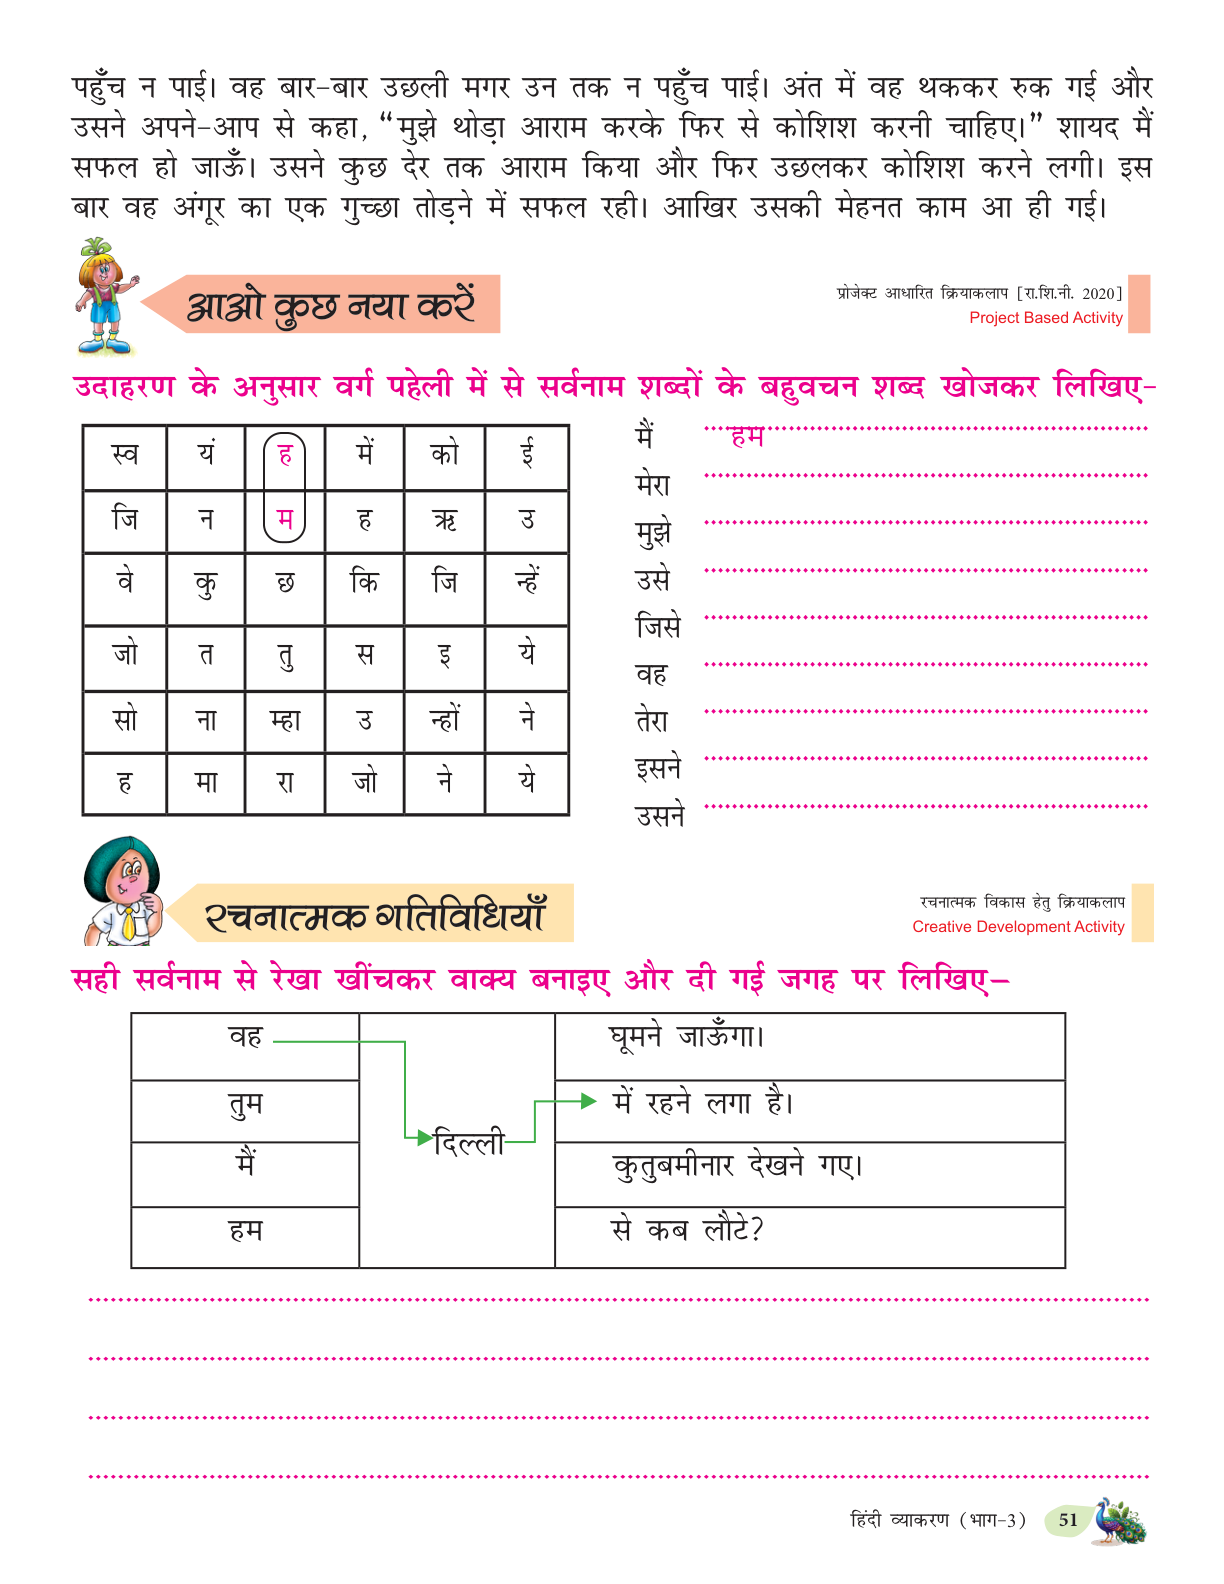 पहुँच न पाई। वह बार-बार उछली मगर उन तक न पहुँच पाई। अंत में वह थककर रुक गई और
उसने अपने-आप से कहा, “मुझे थोड़ा आराम करके फिर से कोशिश करनी चाहिए।” शायद मैं
सफल हो जाऊँ। उसने कुछ देर तक आराम किया और फिर उछलकर कोशिश करने लगी। इस
बार वह अंगूर का एक गुच्छा तोड़ने में सफल रही। आखिर उसकी मेहनत काम आ ही गई।
आओ कुछ नया करें
प्रोजेक्ट आधारित क्रियाकलाप [रा.शि.नी. 2020]
Project Based Activity
उदाहरण के अनुसार वर्ग पहेली में से सर्वनाम शब्दों के बहुवचन शब्द खोजकर लिखिए-
स्व यं ह में को ई
जि न म ह ऋ उ
वे कु छ कि जि न्हें
जो त तु स इ ये
सो ना म्हा उ न्हों ने
ह मा रा जो ने ये
मैं हम
मेरा
मुझे
उसे
जिसे
वह
तेरा
इसने
उसने
रचनात्मक गतिविधियाँ
रचनात्मक विकास हेतु क्रियाकलाप
Creative Development Activity
सही सर्वनाम से रेखा खींचकर वाक्य बनाइए और दी गई जगह पर लिखिए–
वह घूमने जाऊँगा।
तुम में रहने लगा है।
दिल्ली
मैं कुतुबमीनार देखने गए।
हम से कब लौटे?
हिंदी व्याकरण (भाग-3) 51